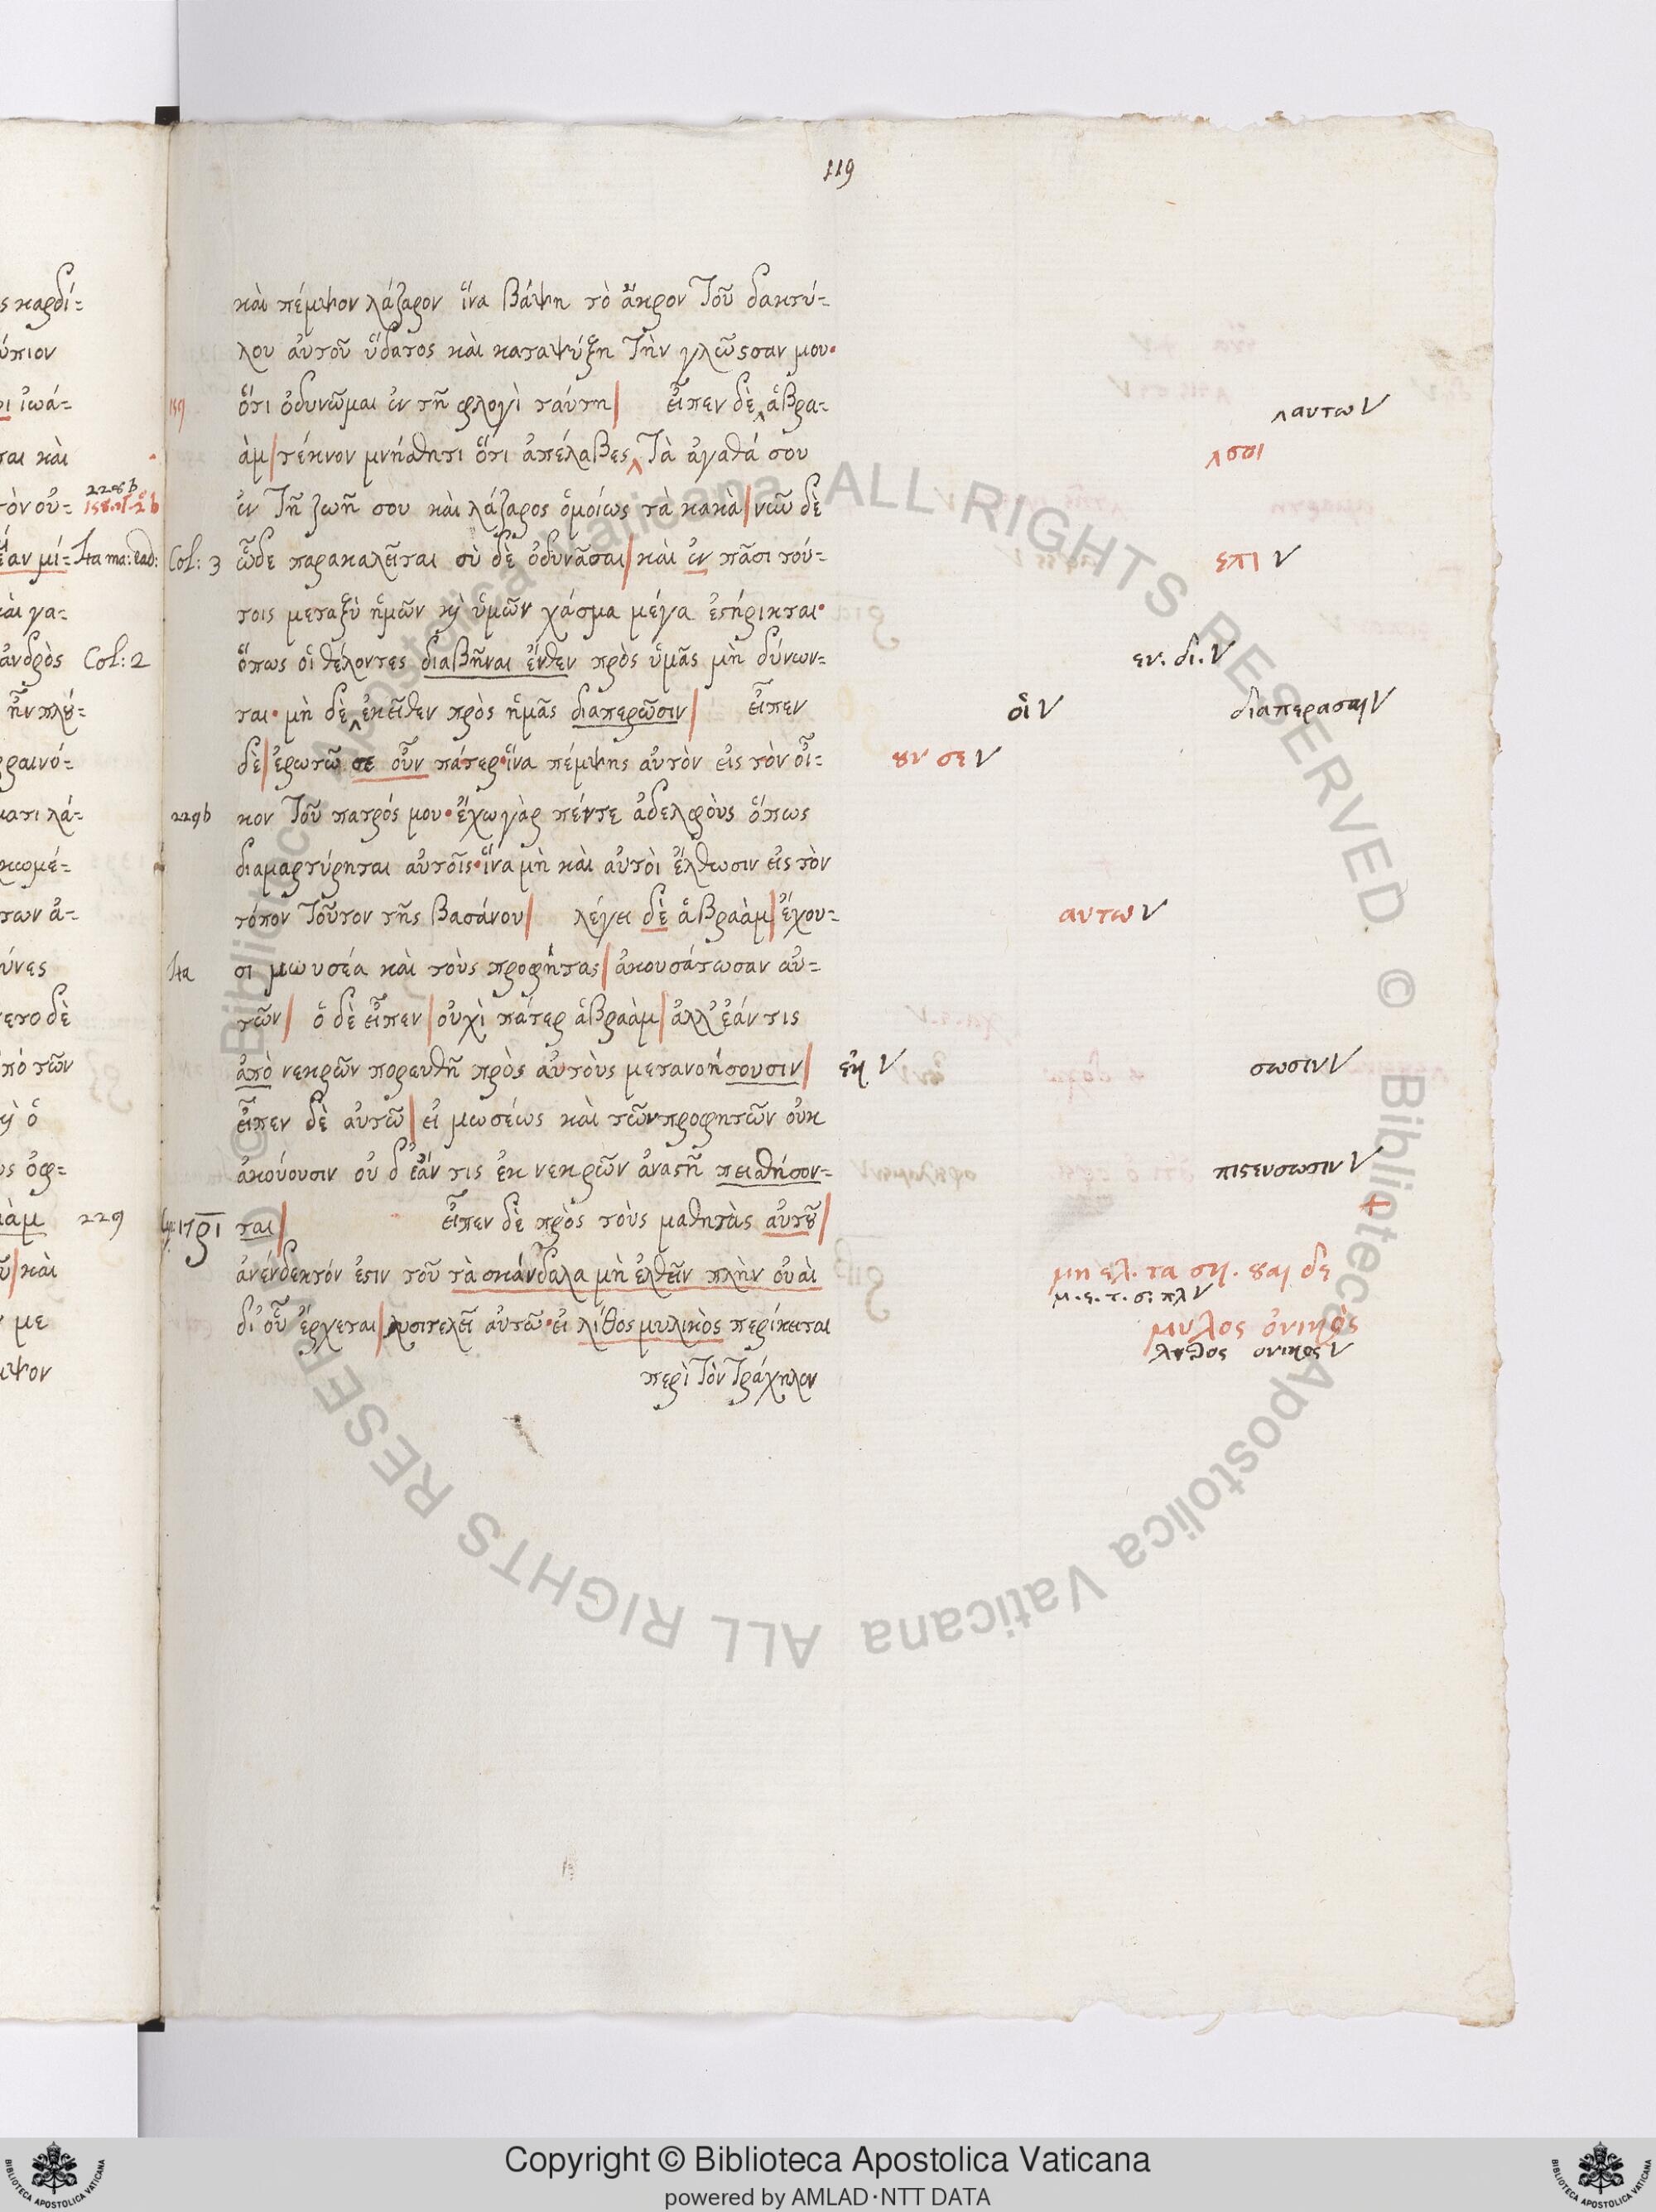 119
καὶ πέμψον λάζαρον ἵνα βάψη τὸ ἄκρον τοῦ δακτύ=
λου αὐτοῦ ὕδατος καὶ καταψύξη τὴν γλῶσσαν μου·
ὅτι ὀδυνῶμαι ἐν τῆ φλογὶ ταύτη| εἶπεν δὲ ‸ ἀβρα= ‸αυτω V
ὰμ| τέκνον μνήσθητι ὅτι ἀπέλαβες ‸ τὰ ἀγαθά σου ‸σοι
ἐν τῆ ζωῆ σου καὶ λάζαρος ὁμοίως τὰ κακὰ| νῶ δὲ
Col: 3 ὧδε παρακαλεῖται σὺ δὲ ὀδυνᾶσαι| καὶ ἐν πᾶσι τού= επι V
τοις μεταξὺ ἡμῶν κỳ ὑμῶν χάσμα μέγα ἐστήρικται·
ὅπως οἱ θέλοντες διαβῆναι ἔνθεν πρὸς ὑμᾶς μὴ δύνων= εν. δι. V
ται· μὴ δὲ ‸ ἐκεῖθεν πρὸς ἡμᾶς διαπερῶσιν| εἶπεν οἱ V διαπερασαι V
δὲ| ἐρωτῶ σε οὖν πάτερ· ἵνα πέμψης αὐτὸν εἰς τὸν οἶ= ουν σε V
229b κον τοῦ πατρός μου· ἔχω γὰρ πέντε ἀδελφοὺς ὅπως
διαμαρτύρηται αὐτοῖς· ἵνα μὴ καὶ αὐτοὶ ἔλθωσιν εἰς τὸν
τόπον τοῦτον τῆς βασάνου| λέγει δὲ ἀβραὰμ| ἔχου= αυτω V
Ita σι μωυσέα καὶ τοὺς προφήτας| ἀκουσάτωσαν αὐ=
τῶν| ὁ δὲ εἶπεν| οὐχὶ πάτερ ἀβραὰμ| ἀλλ' ἐάν τις
ἀπὸ νεκρῶν πορευθῆ πρὸς αὐτοὺς μετανοήσουσιν| ἐκ V σωσιν V
εἶπεν δὲ αὐτῶ| εἰ μωσέως καὶ τῶν προφητῶν οὐκ
ἀκούουσιν οὐ δ' ἐάν τις ἐκ νεκρῶν ἀναστῆ πεισθήσον= πιστευσωσιν V
ται| εἶπεν δὲ πρὸς τοὺς μαθητὰς αὐτοῦ| +
ἀνένδεκτόν ἐστιν τοῦ τὰ σκάνδαλα μὴ ἐλθεῖν πλὴν οὐαὶ μη ελ. τα σκ. ουαι δε
μ. ε. τ. σ. πλ V
δι' οὗ ἔρχεται| λυσιτελεῖ αὐτῶ· εἰ λίθος μυλικὸς περίκειται μυλος ὀνικὸς
λιθος ονικος V
περὶ τὸν τράχηλον
Copyright © Biblioteca Apostolica Vaticana
powered by AMLAD·NTT DATA